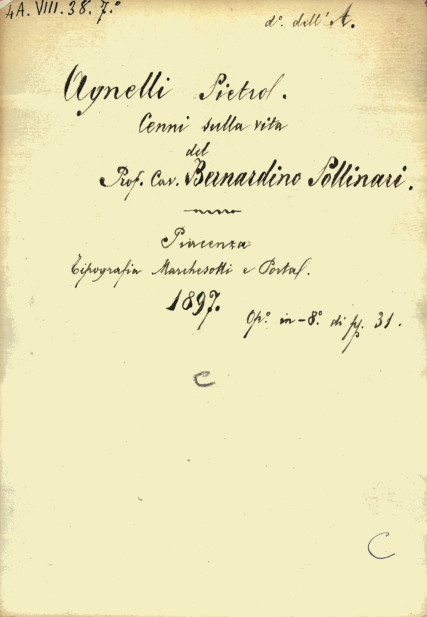 4A. VIII. 38. 7.°
d°. dell' A.
Agnelli Pietro.
Cenni sulla vita
del
Prof. Cav. Bernardino Pollinari.
Piacenza
Tipografia Marchesotti e Porta.
1897.
Op°. in-8°. di pp. 31.
C
C